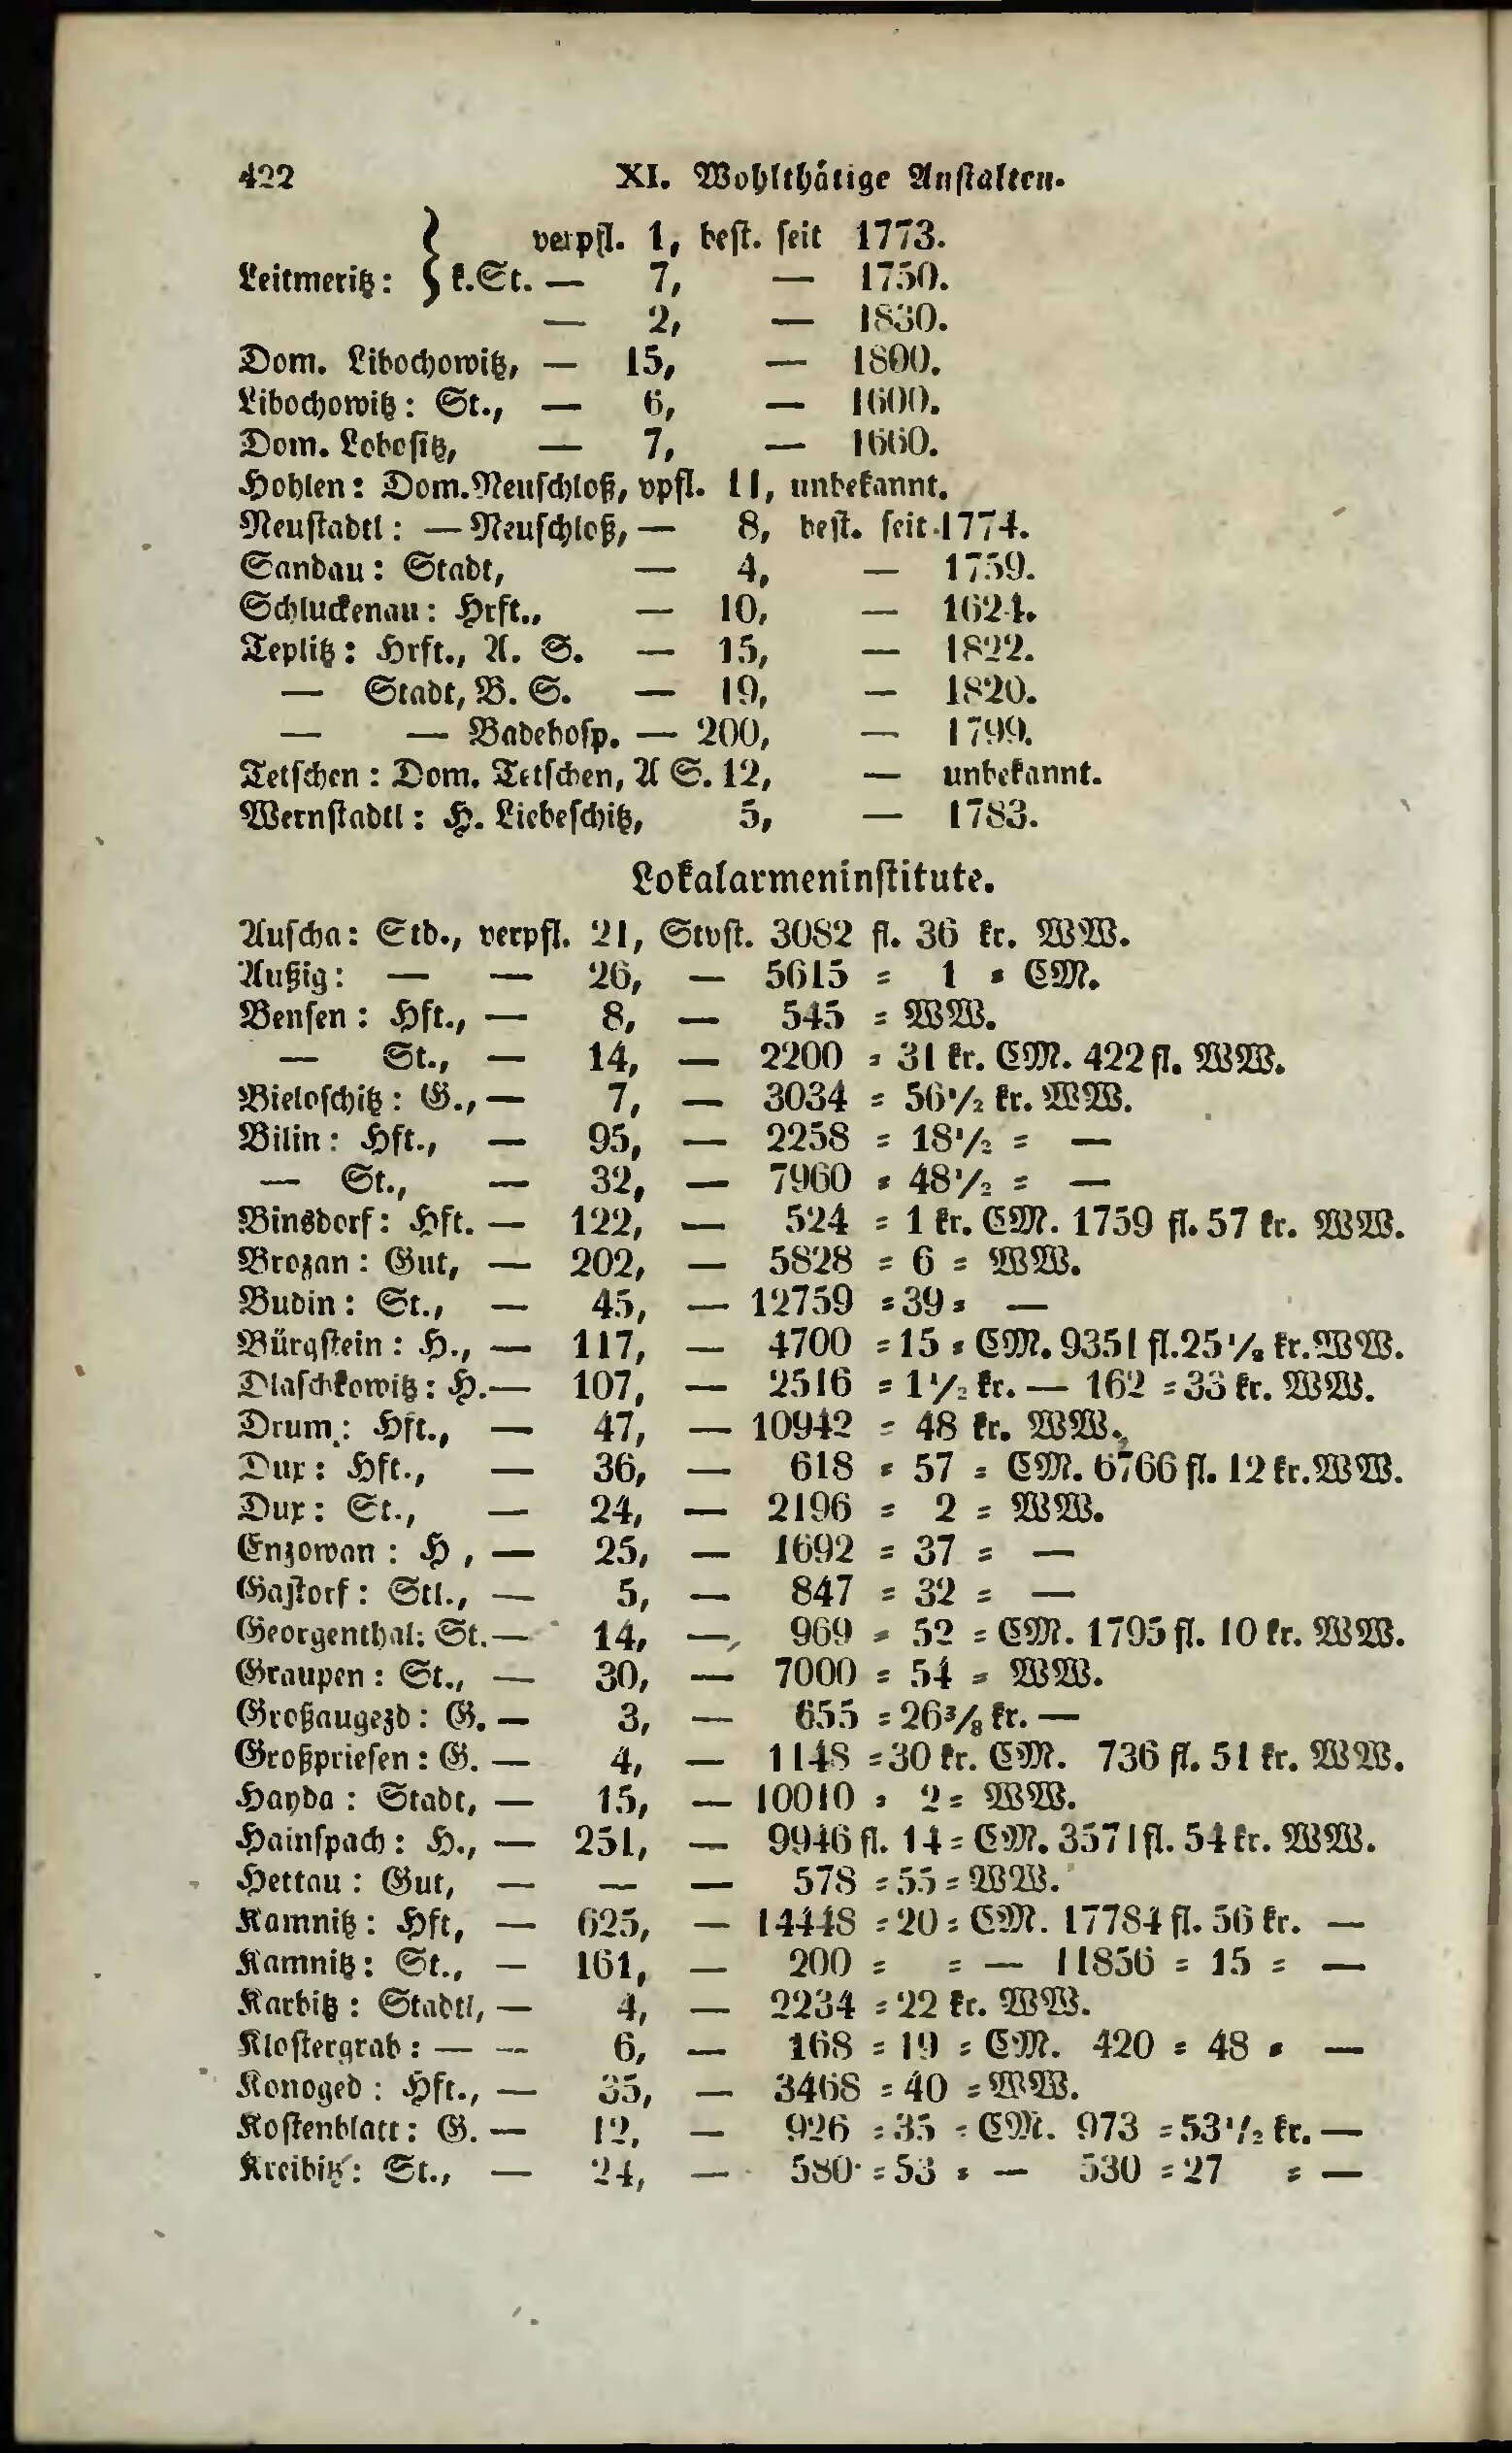 422 XI. Wohlthätige Anstalten.
verpfl. 1, best. seit 1773.
Leitmeritz: } k.St. — 7, — 1750.
— 2, — 1830.
Dom. Libochowitz, — 15, — 1800.
Libochowitz: St., — 6, — 1600.
Dom. Lobositz, — 7, — 1660.
Hohlen: Dom.Neuschloß, vpfl. 11, unbekannt.
Neustadtl: — Neuschloß, — 8, best. seit 1774.
Sandau: Stadt, — 4, — 1759.
Schluckenau: Hrft., — 10, — 1624.
Teplitz: Hrft., A. S. — 15, — 1822.
— Stadt, B. S. — 19, — 1820.
— — Badehosp. — 200, — 1799.
Tetschen: Dom. Tetschen, A S. 12, — unbekannt.
Wernstadtl: H. Liebeschitz, 5, — 1783.
Lokalarmeninstitute.
Auscha: Std., verpfl. 21, Stvft. 3082 fl. 36 kr. WW.
Außig: — — 26, — 5615 = 1 = CM.
Bensen: Hft., — 8, — 545 = WW.
— St., — 14, — 2200 = 31 kr. CM. 422 fl. WW.
Bieloschitz: G., — 7, — 3034 = 56 1/2 kr. WW.
Bilin: Hft., — 95, — 2258 = 18 1/2 = —
— St., — 32, — 7960 = 48 1/2 = —
Binsdorf: Hft. — 122, — 524 = 1 kr. CM. 1759 fl. 57 kr. WW.
Brozan: Gut, — 202, — 5828 = 6 = WW.
Budin: St., — 45, — 12759 = 39 = —
Bürgstein: H., — 117, — 4700 = 15 = CM. 9351 fl. 25 1/8 kr. WW.
Dlaschkowitz: H. — 107, — 2516 = 1 1/2 kr. — 162 = 33 kr. WW.
Drum: Hft., — 47, — 10942 = 48 kr. WW.
Dux: Hft., — 36, — 618 = 57 = CM. 6766 fl. 12 kr. WW.
Dux: St., — 24, — 2196 = 2 = WW.
Enzowan: H, — 25, — 1692 = 37 = —
Gastorf: Stl., — 5, — 847 = 32 = —
Georgenthal: St. — 14, — 969 = 52 = CM. 1795 fl. 10 kr. WW.
Graupen: St., — 30, — 7000 = 54 = WW.
Großaugezd: G. — 3, — 655 = 26 3/8 kr. —
Großpriesen: G. — 4, — 1148 = 30 kr. CM. 736 fl. 51 kr. WW.
Hayda: Stadt, — 15, — 10010 = 2 = WW.
Hainspach: H., — 251, — 9946 fl. 14 = CM. 3571 fl. 54 kr. WW.
Hettau: Gut, — — — 578 = 55 = WW.
Kamnitz: Hft, — 625, — 14448 = 20 = CM. 17784 fl. 56 kr. —
Kamnitz: St., — 161, — 200 = = — 11856 = 15 = —
Karbitz: Stadtl, — 4, — 2234 = 22 kr. WW.
Klostergrab: — — 6, — 168 = 19 = CM. 420 = 48 = —
Konoged: Hft., — 35, — 3468 = 40 = WW.
Kostenblatt: G. — 12, — 926 = 35 = CM. 973 = 53 1/2 kr. —
Kreibitz: St., — 24, — 580 = 53 = — 530 = 27 = —